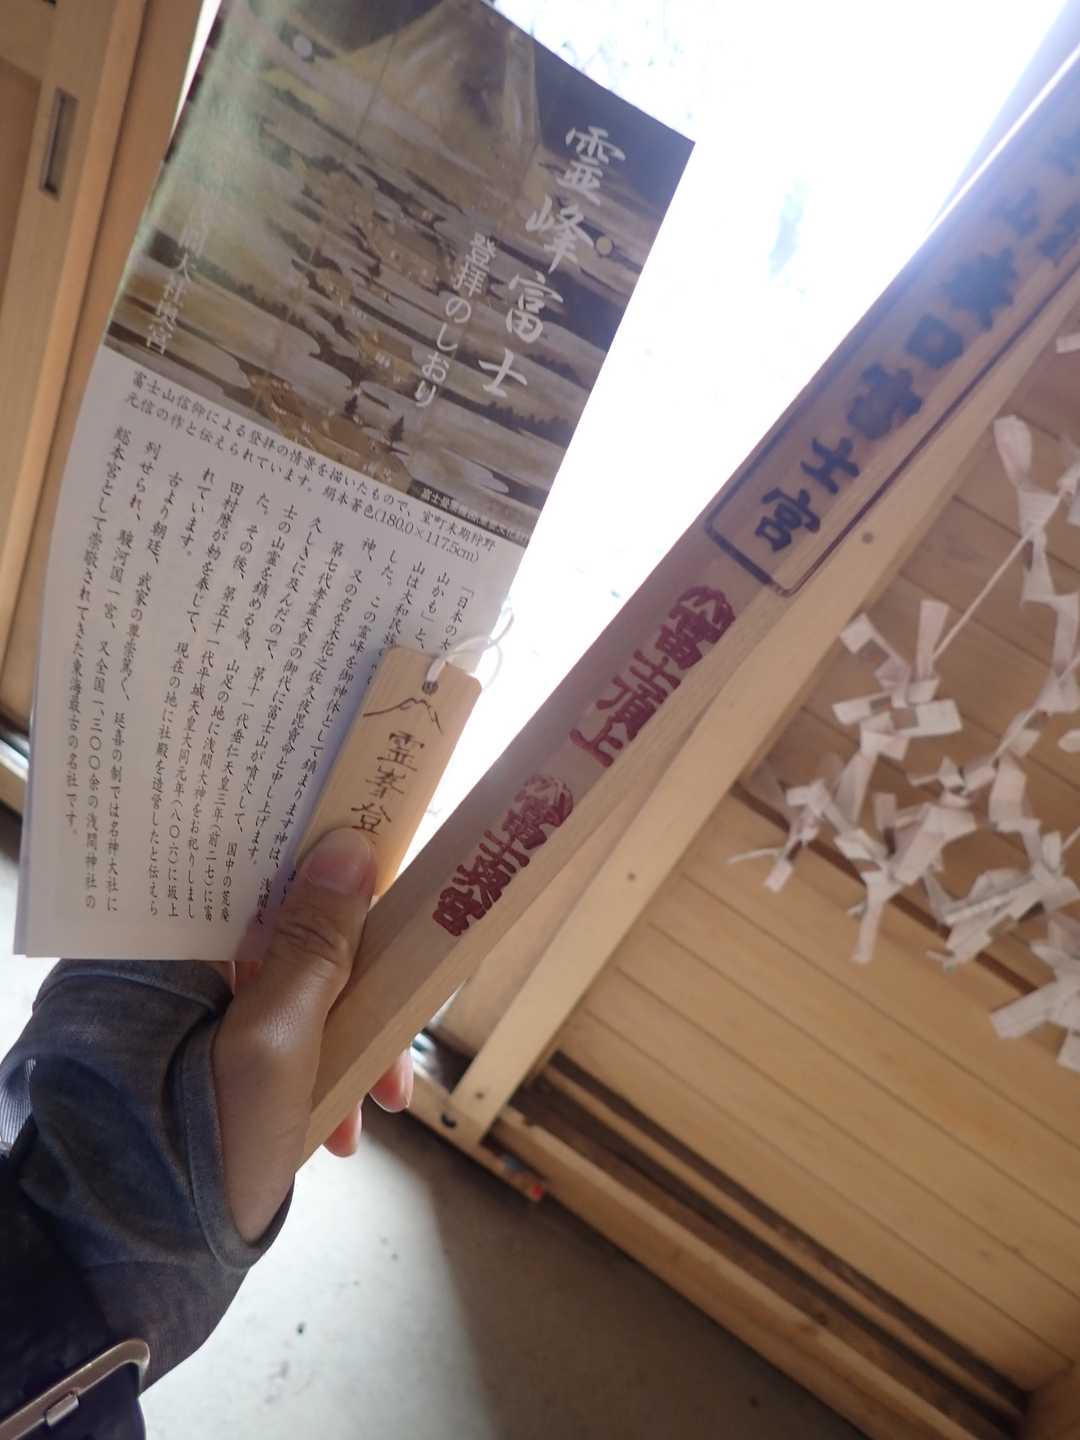 霊峰富士
登拝のしおり
間大社奥宮
富士山信仰による登拝の情景を描いたもので、室町末期狩野
元信の作と伝えられています。 絹本著色(180.0×117.5cm)
「日本の
山かも」と、
山は大和民
した。この霊峰を御神体として鎮まります神は、浅間大
神、又の名を木花之佐久夜毘売命と申し上げます。
第七代孝霊天皇の御代に富士山が噴火して、国中の荒廃
久しきに及んだので、第十一代垂仁天皇三年(前二七)に富
士の山霊を鎮める為、山足の地に浅間大神をお祀りしまし
た。その後、第五十一代平城天皇大同元年(八〇六)に坂上
田村麿が勅を奉じて、現在の地に社殿を造営したと伝えら
れています。
古より朝廷、武家の尊崇篤く、延喜の制では名神大社に
列せられ、駿河国一宮、又全国一、三〇〇余の浅間神社の
総本宮として崇敬されてきた東海最古の名社です。
霊峯登
口富士宮
富士頂上
富士奥宮